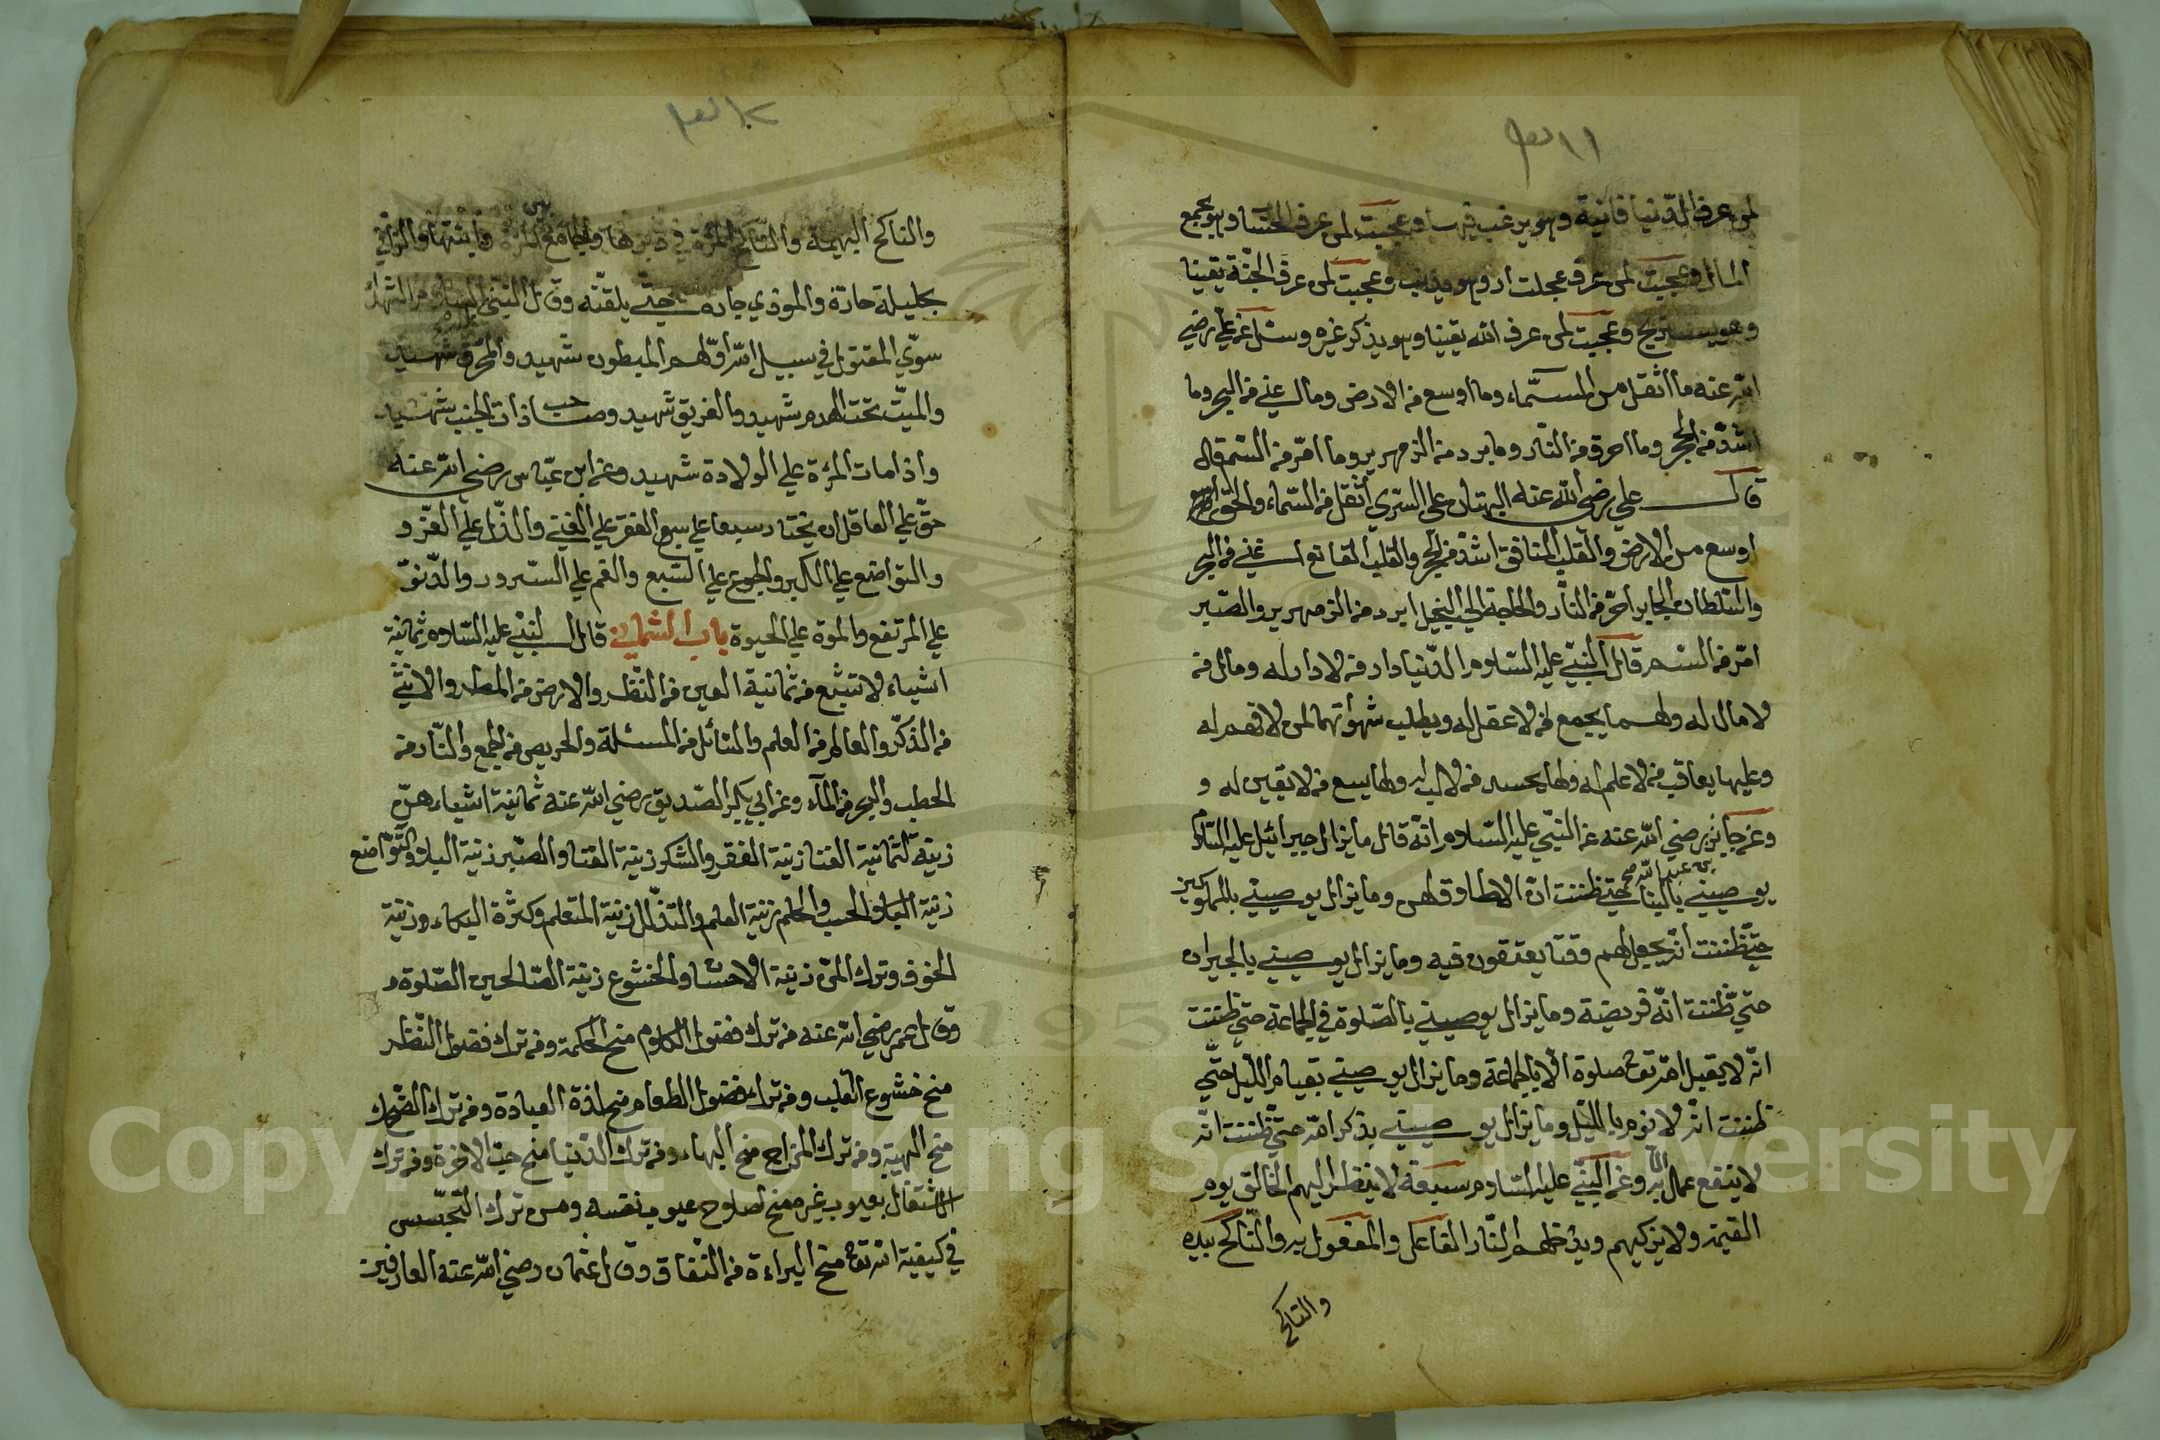 لمن عرف الدنيا فانية وهو يرغب فيها وعجبت لمن عرف الحساب وهو يجمع
المال وعجبت لمن عرف وعجبت لمن عرف الجنة يقينا
وهو يستريح وعجبت لمن عرف الله يقينا وهو يذكر غيره وسئل عن علي رضي
الله عنه ما اثقل من السماء وما اوسع من الارض وما اغني من البحر وما
اشد من الحجر وما احرق من النار وما برد من الزمهرير وما امر من السم قال
قال علي رضي الله عنه البهتان على البري أثقل من السماء والحق
اوسع من الارض والقلب المنافق اشد من الحجر والقلب القانع اغني من البحر
والسلطان الجابر احر من النار والحاجة الي البخيل ابرد من الزمهرير والصبر
امر من السم قال النبي عليه السلام الدنيا دار من لا دار له ومال من
لا مال له ولها يجمع من لا عقل له ويطلب شهواتها لمن لا فهم له
وعليها يعاقب من لا علم له ولها يحسد من لا لب له ولها يسع من لا يقين له و
وعن جابر رضي الله عنه عن النبي عليه السلام انه قال ما يزال جبرائيل عليه السلام
بن عبد الله
يوصيني بالنساء حتي ظننت ان الاطلاق لهن وما يزال يوصيني بالمملوكين
حتي ظننت انه يجعل لهم وقتا يعتقون فيه وما يزال يوصيني بالجيران
حتي ظننت انه فريضة وما يزال يوصيني بالصلوة في الجماعة حتي ظننت
انه لا يقبل الله تع صلوة الا بالجماعة وما يزال يوصيني بقيام الليل حتي
ظننت انه لا نوم بالليل وما يزال يوصيني بذكر الله حتي ظننت انه
لا ينفع عمال الا به وعن النبي عليه السلام سبعة لا ينظر اليهم الخالق يوم
القيمة ولا يزكيهم ويدخلهم النار الفاعل والمفعول به والناكح بيده
والناكح
والناكح البهيمة والناكح المرءة في دبرها والجامع بين المرءة وابنتها والزاني
بحليلة جاره والموذي جاره حتي يلعنه وقال النبي عليه السلام الشهداء
سوي المقتول في سبيل الله اولهم المبطون شهيد والمحرق شهيد
والميت تحت الهدم شهيد والغريق شهيد وصاحب ذات الجنب شهيد
واذا مات المرءة علي الولادة شهيد وعن ابن عباس رضي الله عنه
حق علي العاقل ان يختار سبعا علي سبع الفقر علي الغني والذل علي العز و
والتواضع علي الكبر والجوع علي الشبع والغم علي السرور والدنو
علي المرتفع والموة علي الحيوة باب الثماني قال النبي عليه السلام ثمانية
اشياء لا تشبع من ثمانية العين من النظر والارض من المطر والانثي
من الذكر والعالم من العلم والسائل من المسئلة والحريص من الجمع والنار من
الحطب والبحر من الماء وعن ابي بكر الصديق رضي الله عنه ثمانية اشياء هن
زينة لثمانية الغنا زينة الفقر والشكر زينة الغنا والصبر زينة البلاء والتواضع
زينة الحسب والحلم زينة العلم والتذلل زينة المتعلم وكثرة البكاء زينة
الخوف وترك المن زينة الاحسان والخشوع زينة الصالحين الصلوة
وقال عمر رضي الله عنه من ترك فضول الكلام منح الحكمة ومن ترك فضول النظر
منح خشوع القلب ومن ترك فضول الطعام منح لذة العبادة ومن ترك الضحك
منح الهيبة ومن ترك المزاح منح البهاء ومن ترك الدنيا منح حب الاخرة ومن ترك
الاشتغال بعيوب غيره منح لصلاح عيوب نفسه ومن ترك التجسس
في كيفية الله تع منح البراءة من النفاق وقال عثمان رضي الله عنه العارفين
Copyright © King Saud University